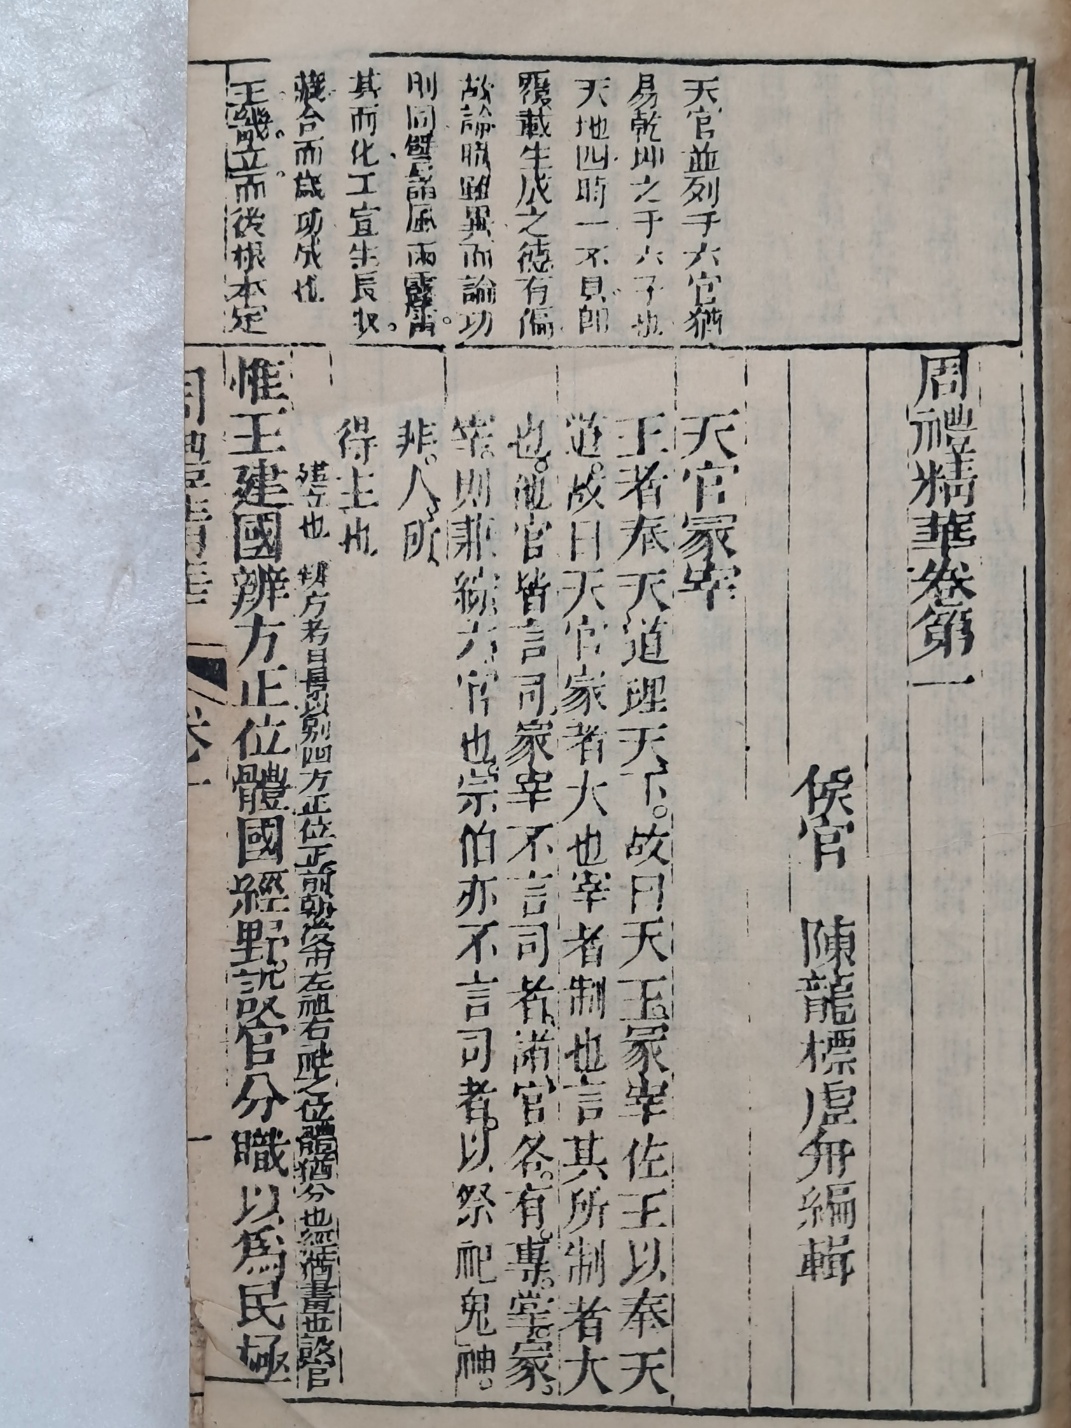 周禮精華卷第一
侯官　陳龍標虛舟編輯
天官冢宰
王者奉天道理天下。故曰天王冢宰佐王以奉天
道。故曰天官冢者大也宰者制也言其所制者大
也。他官皆言司冢宰不言司者諸官各。有。專。掌。冢。
宰。則兼綜六官也宗伯亦不言司者。以祭祀鬼神。
非。人。所
得主也
建立也　辨方考日景以別四方正位正前朝後市左祖右社之位體猶分也經猶畫也設官
惟王建國辨方正位體國經野設官分職以為民極
天官並列于六官猶
易乾坤之于六子也
天地四時一不具即
覆載生成之德有偏
故論職雖異而論功
則同譬諸風雨露雷。
其而化工宣生長收。
藏合而歲功成也
王畿立而後根本定
周禮精華　卷一　一